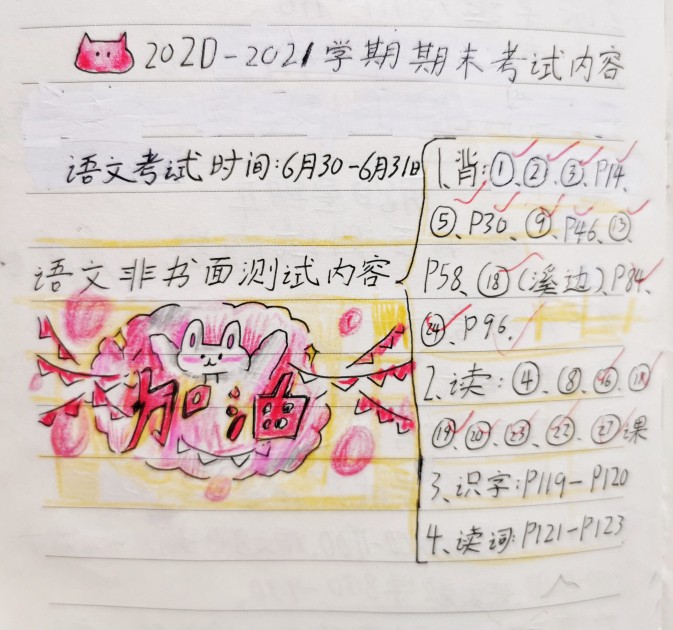 2020-2021学期期末考试内容
语文考试时间:6月30-6月31日
语文非书面测试内容
加油
1、背:①、②、③、P14、
⑤、P30、⑨、P46、⑬、
P58、⑱(溪边)、P84、
㉔、P96.
2、读:④、⑧、⑯、⑱
⑲、⑳、㉓、㉒、㉗课
3、识字:P119-P120
4、读词:P121-P123